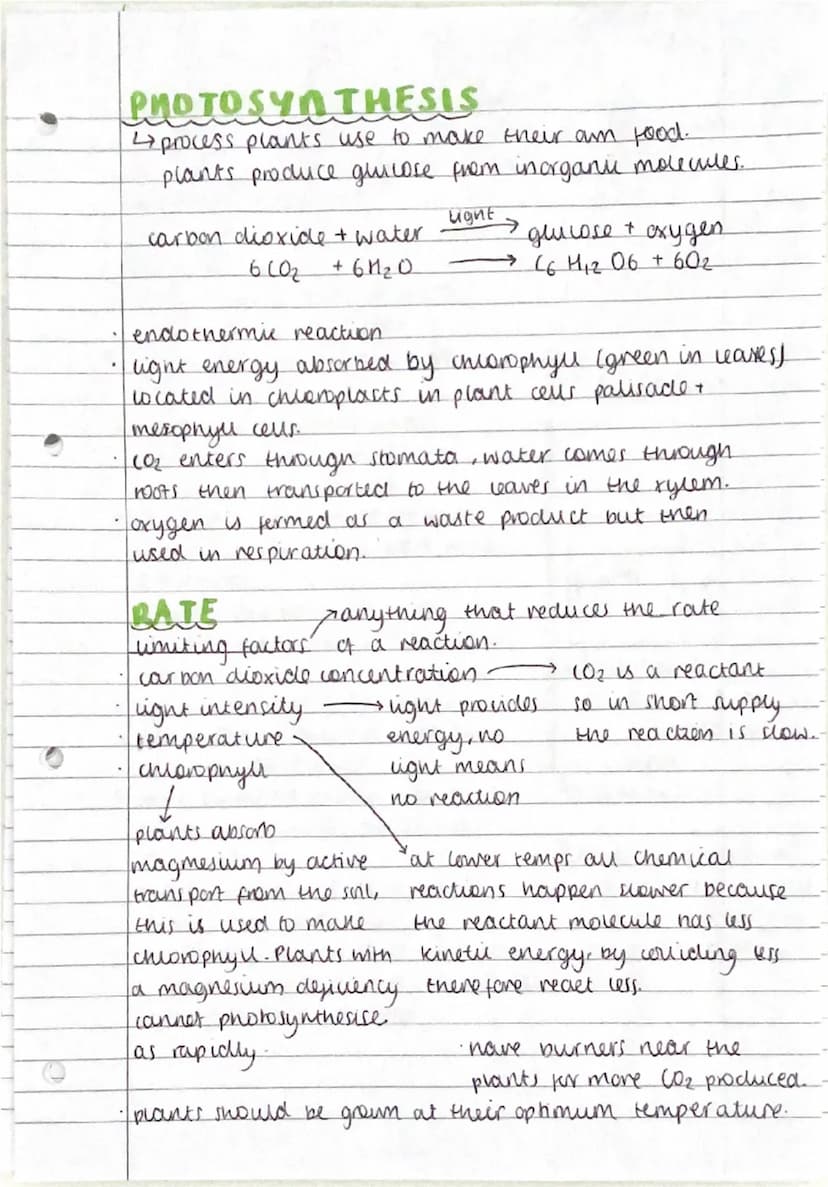 PHOTOSYNTHESIS
↳ process plants use to make their own food.
plants produce glucose from inorganic molecules.
light
carbon dioxide + water → glucose + oxygen
6CO2 + 6H2O → C6H12O6 + 6O2
· endothermic reaction
· light energy absorbed by chlorophyll (green in leaves)
located in chloroplasts in plant cells palisade +
mesophyll cells.
· CO2 enters through stomata, water comes through
roots then transported to the leaves in the xylem.
· oxygen is formed as a waste product but then
used in respiration.
RATE
limiting factors ↗ anything that reduces the rate
of a reaction.
· carbon dioxide concentration → CO2 is a reactant
so in short supply
the reaction is slow.
· light intensity → light provides
energy, no
light means
no reaction
· temperature
· chlorophyll
↓
plants absorb
magmesium by active
transport from the soil,
this is used to make
chlorophyll. Plants with
a magnesium deficiency
cannot photosynthesise
as rapidly.
at lower temps all chemical
reactions happen slower because
the reactant molecule has less
kinetic energy, by colliding less
therefore react less.
· have burners near the
plants for more CO2 produced.
· plants should be grown at their optimum temperature.